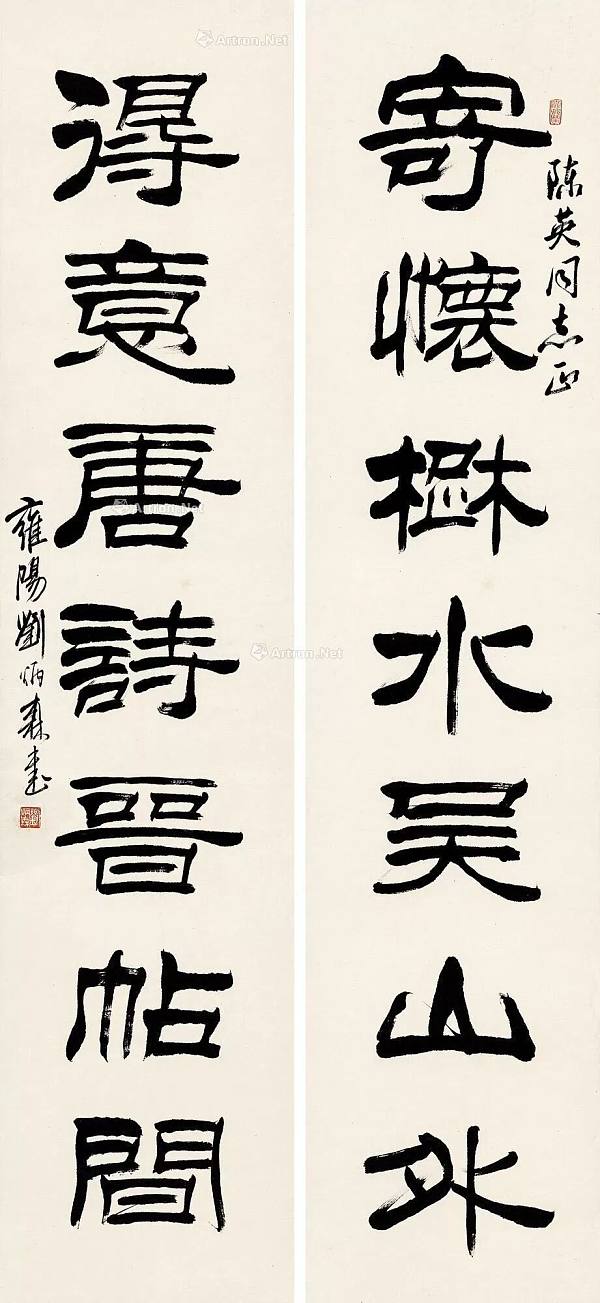 陈英同志正
寄懷楚水吴山外
得意唐詩晉帖間
雍陽劉炳森書
Artron.Net
Artron.Net
Artron.Net
Artron.Net